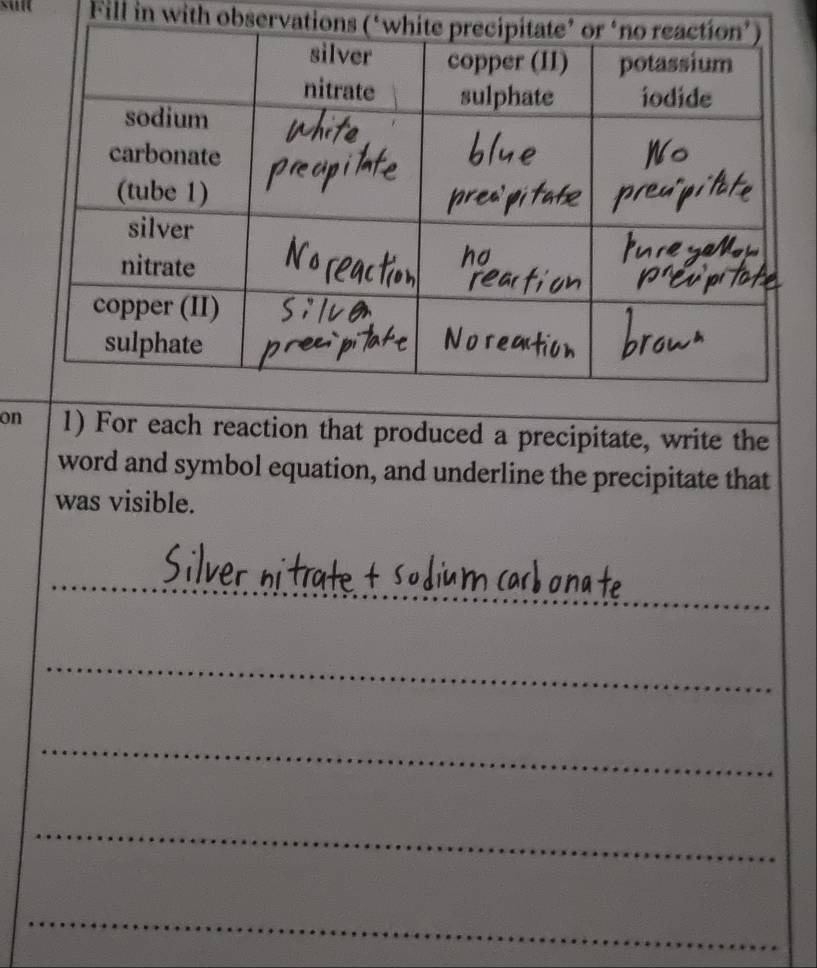 Fill in with observations ('white precipitate' or 'no reaction')
silver nitrate
copper (II) sulphate
potassium iodide
sodium carbonate (tube 1)
White precipitate
blue precipitate
No precipitate
silver nitrate
No reaction
no reaction
Pure yellow precipitate
copper (II) sulphate
Silver precipitate
No reaction
brown
on
1) For each reaction that produced a precipitate, write the
word and symbol equation, and underline the precipitate that
was visible.
Silver nitrate + sodium carbonate